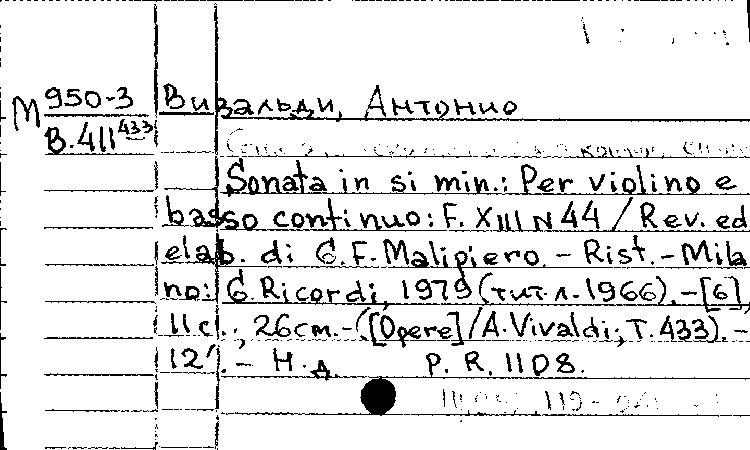 М 950-3 Вивальди, Антонио
В.411 433
Sonata in si min.: Per violino e
basso continuo: F. XIII N 44 / Rev. ed
elab. di G.F. Malipiero. - Rist. - Mila
no: G. Ricordi, 1979 (тит. л. 1966). - [6],
11 с.; 26 см. - ([Opere] / A. Vivaldi; T. 433). -
12'. - Н. д. P. R. 1108.